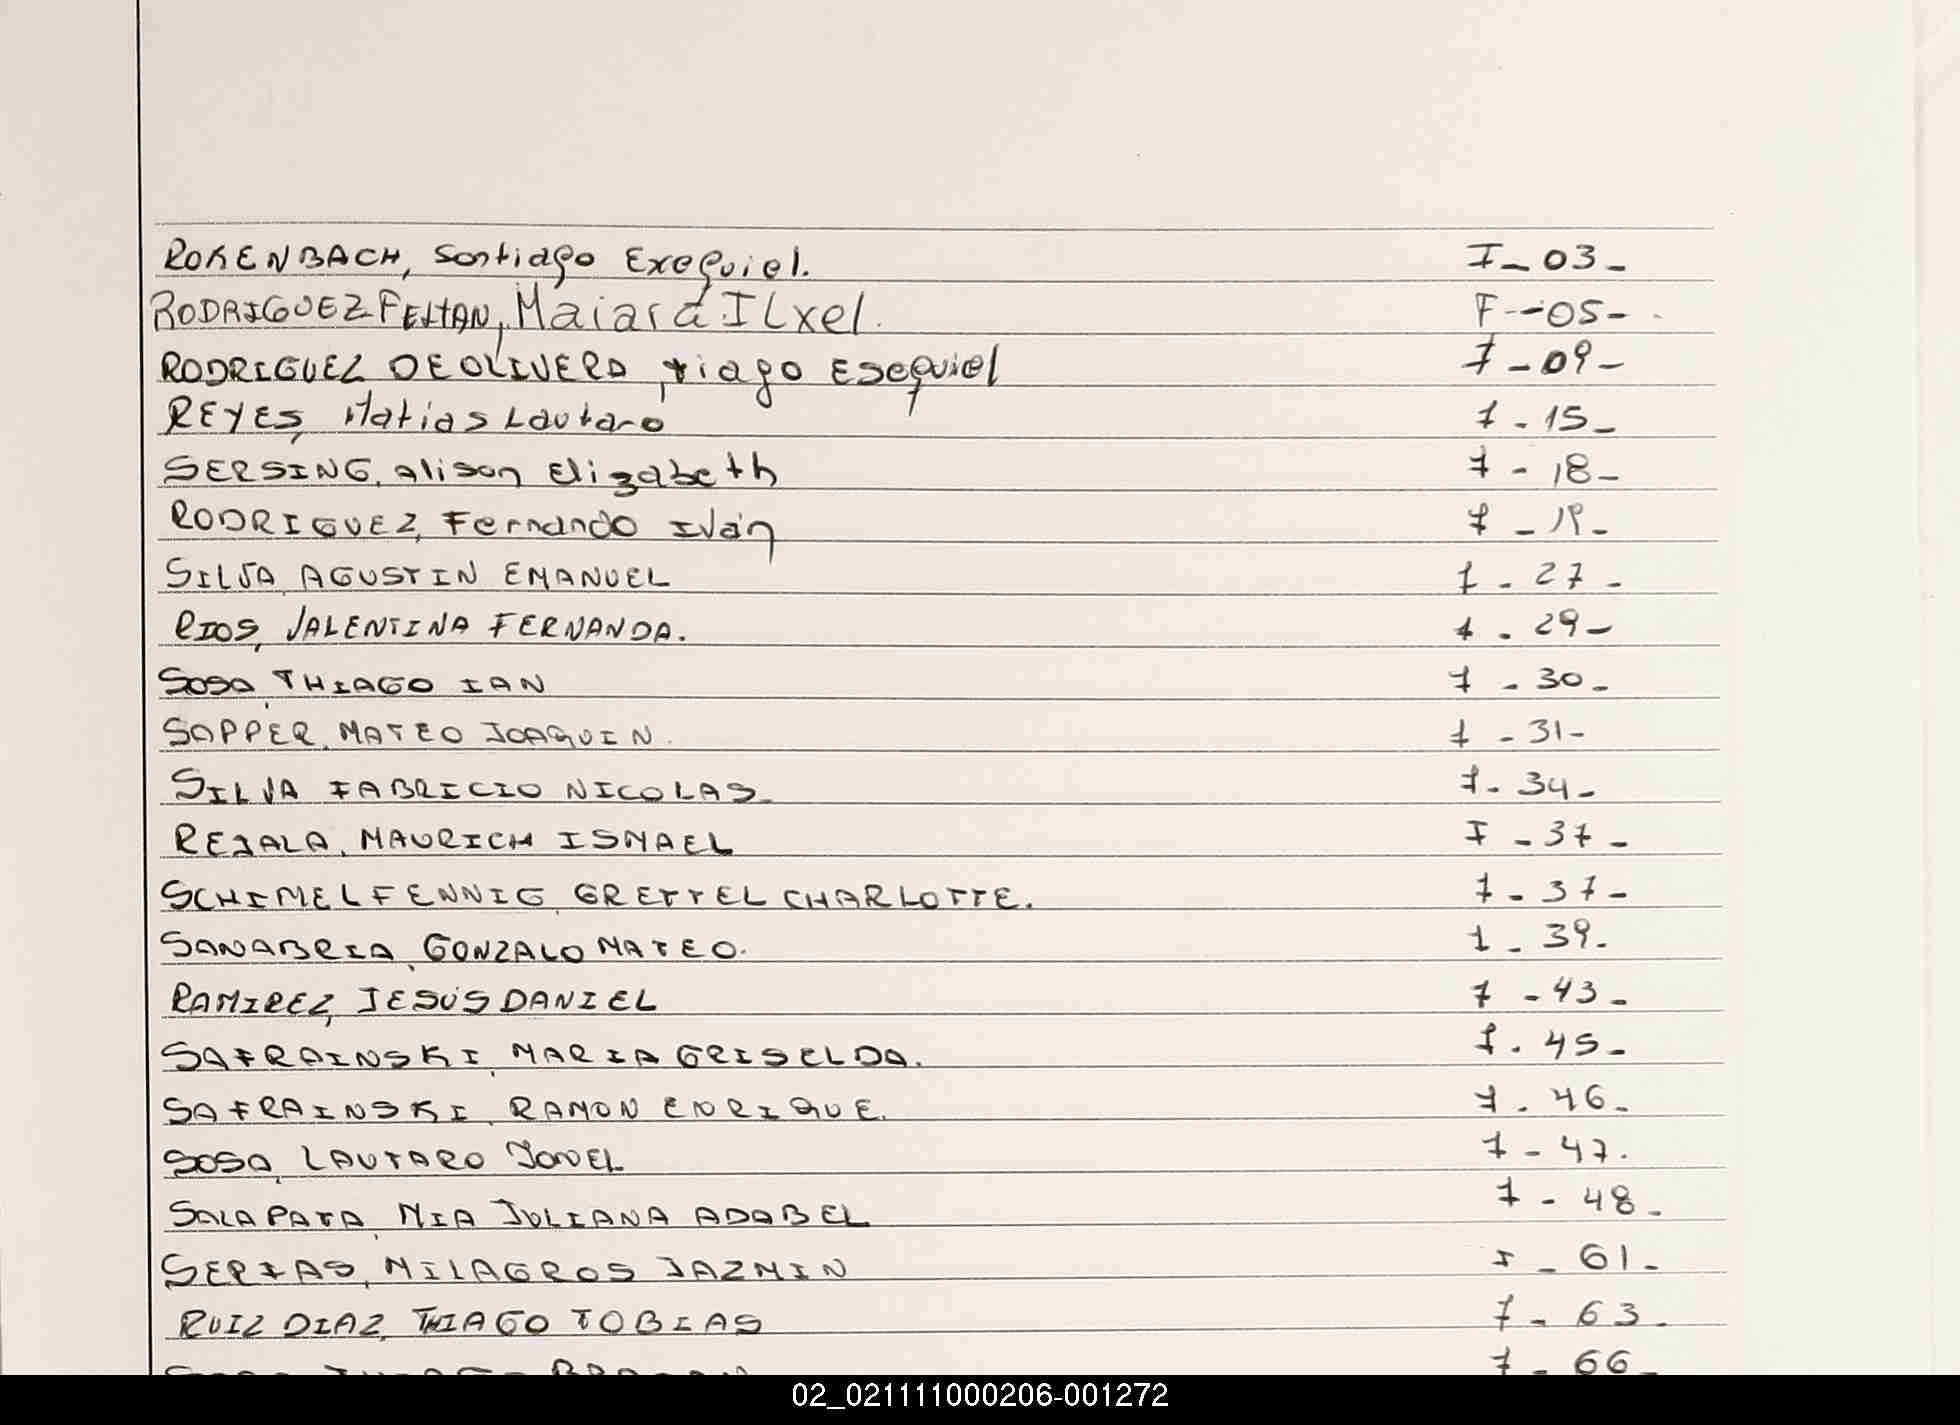 ROKENBACH, Santiago Exequiel. I-03-
RODRIGUEZ FELTAN, Maiara ILxel. F--05-
RODRIGUEZ DE OLIVERA, tiago Esequiel 7-09-
REYES, Matias Lautaro 7-15-
SERSING, Alison Elizabeth 7-18-
RODRIGUEZ, Fernando Iván 7-19-
SILVA, AGUSTIN EMANUEL 7-27-
RIOS, VALENTINA FERNANDA. 7-29-
SOSA, THIAGO IAN 7-30-
SOPPER, MATEO JOAQUIN. 7-31-
SILVA FABRICIO NICOLAS- 7-34-
REJALA, MAURICH ISMAEL I-37-
SCHIMELFENNIG, GRETTEL CHARLOTTE. 7-37-
SANABRIA, GONZALO MATEO. 1-39.
RAMIREZ, JESÚS DANIEL 7-43-
SAFRAINSKI, MARIA GRISELDA. 7.45-
SAFRAINSKI, RAMON ENRIQUE. 7.46-
SOSA, LAUTARO 7-47.
SALAPATA, MIA JULIANA ADABEL 7-48-
SERFAS, MILAGROS JAZMIN I-61-
RUIZ DIAZ, THIAGO TOBIAS 7-63-
7-66-
02_021111000206-001272